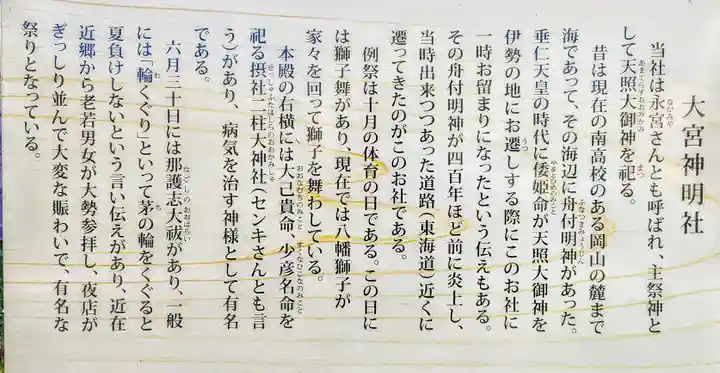 大宮神明社
当社は永宮さんとも呼ばれ、主祭神と
して天照大御神を祀る。
昔は現在の南高校のある岡山の麓まで
海であって、その海辺に舟付明神があった。
垂仁天皇の時代に倭姫命が天照大御神を
伊勢の地にお遷しする際にこのお社に
一時お留まりになったという伝えもある。
その舟付明神が四百年ほど前に炎上し、
当時出来つつあった道路(東海道)近くに
遷ってきたのがこのお社である。
例祭は十月の体育の日である。この日に
は獅子舞があり、現在では八幡獅子が
家々を回って獅子を舞わしている。
本殿の右横には大己貴命、少彦名命を
祀る摂社二柱大神社(センキさんとも言
う)があり、病気を治す神様として有名
である。
六月三十日には那護志大祓があり、一般
には「輪くぐり」といって茅の輪をくぐると
夏負けしないという言い伝えがあり、近在
近郷から老若男女が大勢参拝し、夜店が
ぎっしり並んで大変な賑わいで、有名な
祭りとなっている。